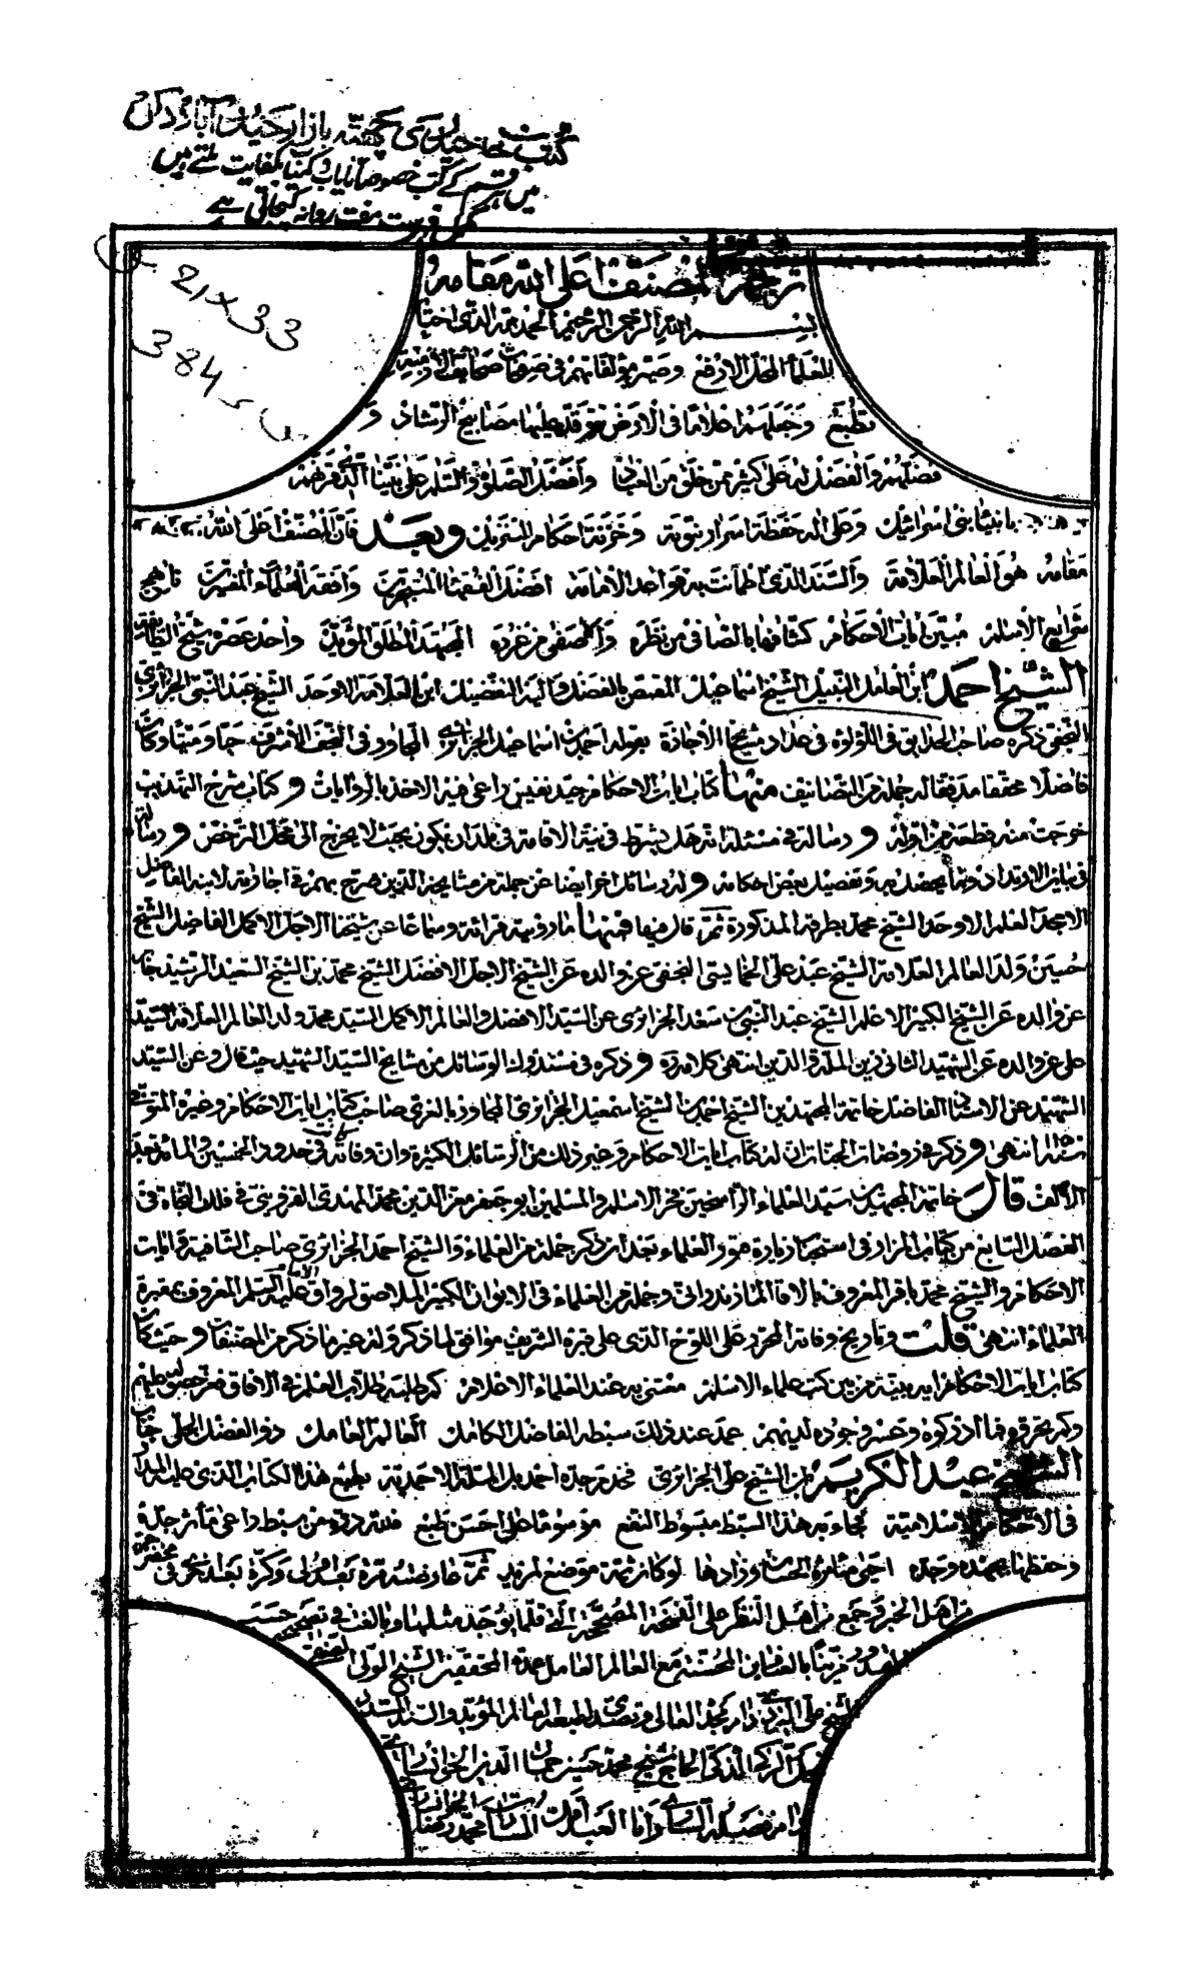 کتب خانہ حیدری پتھر بازار حیدرآباد دکن
میں ہر قسم کے کتب خصوصاً نایاب و کمیاب بکفایت ملتے ہیں
مکمل فہرست مفت روانہ کیجاتی ہے
21x33
384
ترجمة المصنف اعلى الله مقامه
بسم الله الرحمن الرحيم الحمد لله الذى اختار
للعلماء المحل الارفع وصير مؤلفاتهم فى صفحات صحائف الازمنة
تطبع وجعلهم اعلاما فى الارض توقد عليها مصابيح الرشاد و
فضلهم والفضل له على كثير ممن خلق من العباد وافضل الصلوة والسلام على نبينا الذى قرنهم
بانبياء بنى اسرائيل وعلى اله حفظة اسرار نبوته وخزنة احكام التنزيل وبعد فان المصنف اعلى الله
مقامه هو العالم العلامة والسند الذى اطمأنت به قواعد الامامة افضل الفقهاء المتبحرين وافقه العلماء المفسرين ناهج
شرايع الاسلام مبين ايات الاحكام كشافها بالصافى من نظره والمصفى من غرره المجتهد المطلق المؤيد وواحد عصره شيخ الطائفة
الشيخ احمد ابن العامل النبيل الشيخ اسماعيل المختص بالفضل واليه التفضيل ابن العلامة الاوحد الشيخ عبد النبى الجزائرى
النجفى ذكره صاحب الحدايق فى اللؤلؤة فى عداد مشايخ الاجازة بقوله احمد بن اسماعيل الجزائرى المجاور فى النجف الاشرف حيا وميتا وكان
فاضلا محققا مدققا له جملة من التصانيف منها كتاب ايات الاحكام جيد نفيس راعى فيه الاخذ بالروايات وكتاب شرح التهذيب
خرجت منه قطعة من اوله ورسالة فى مسئلة انه هل يشترط فى نية الاقامة فى بلد ان يكون بحيث لا يخرج الى محل الترخص ورسالة
فى بيان الارتداد وما يحصل به وتفصيل بعض احكامه وله رسائل اخر ايضا عن جملة من مشايخه الذين صرح بهم فى اجازته لابنه الفاضل
الامجد العلم الاوحد الشيخ محمد بطرقه المذكورة ثمة قال فيها فمنها ما رويته قرائة وسماعا عن شيخنا الاجل الاكمل الفاضل الشيخ
حسين ولد العالم العلامة الشيخ عبد على الخمايسى النجفى عن والده عن الشيخ الاجل الافضل الشيخ محمد بن الشيخ السعيد الرشيد جابر
عن والده عن الشيخ الكبير الاعلم الشيخ عبد النبى بن سعد الجزائرى عن السيد الافضل والعالم الاكمل السيد محمد ولد العالم العلامة السيد
على عن والده عن الشهيد الثانى زين الملة والدين انتهى كلامه وذكره فى مستدرك الوسائل من مشايخ السيد الشهيد حيث قال وعن السيد
الشهيد عن الاستاد الفاضل خاتمة المجتهدين الشيخ احمد بن الشيخ اسمعيل الجزائرى المجاور بالغرى صاحب كتاب ايات الاحكام وغيره المتوفى
سنة انتهى وذكر فى روضات الجنات ان له كتاب ايات الاحكام وغير ذلك من الرسائل الكثيرة وان وفاته كانت فى حدود الخمسين والمائة بعد
الالف قال خاتمة المجتهدين سيد العلماء الراسخين فخر الاسلام والمسلمين ابو جعفر معز الدين محمد المهدى القزوينى فى فلك النجاة فى
الفصل السابع من كتاب المزار فى استحباب زيارة قبور العلماء بعد ان ذكر جملة من العلماء والشيخ احمد الجزائرى صاحب الشافية وايات
الاحكام والشيخ محمد باقر المعروف بالاقا المازندرانى وجملة من العلماء فى الايوان الكبير الملاصق لرواق الامام عليه السلم المعروف بمقبرة
العلماء انتهى قلت وتاريخ وفاته المحرر على اللوح الذى على قبره الشريف موافق لما ذكر وله غير ما ذكر من المصنفات وحيث كان
كتاب ايات الاحكام اية بينة من بين كتب علماء الاسلام معتنى به عند العلماء الاعلام كم طلبته طلاب العلم فى الافاق فتعسر حصوله عليهم
وكم تحروه فما ادركوه وعسر وجوده لديهم عمد عند ذلك سبطه الفاضل الكامل العالم العامل ذو الفضل الجلى جناب
الشيخ عبد الكريم ابن الشيخ على الجزائرى فخدم جده احمد بل الملة الاحمدية بطبع هذا الكتاب الذى عليه المدار
فى الاحكام الاسلامية فجاء به هذا السبط مبسوط النفع موسوما على احسن طبع فلله دره من سبط داعى مأثر جده
وحفظها بجهده وجده احيى مأثره الحسان وزادها لو كان ثمة موضع لمزيد ثم عاوضته مرة بعد اولى وكرة بعد اخرى فى محضر
من اهل الخبرة وجمع من اهل النظر على النسخة المصححة التى قلما يوجد مثلها وبالغت فى تصحيحه حسب
المقدور قرينا بالعناية المحسنة مع العالم العامل عمدة المحققين الشيخ الولى الصفى
الشيخ على اليزدى دام مجده العالى وتصدى لطبعه العالم المؤيد والسند المسدد
الزكى الذكى الحاج شيخ محمد حسين جمال الدين الخوانسارى
دام فضله السارى وانا العبد محمد رضا